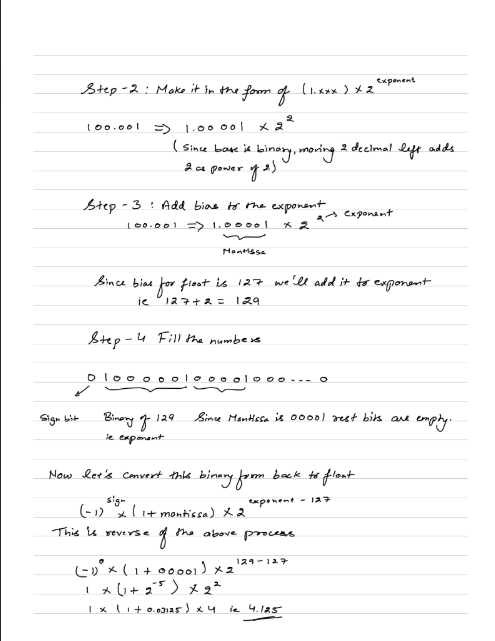 Step-2 : Make it in the form of (1.xxx) x 2^exponent
100.001 => 1.00001 x 2^2
(Since base is binary, moving 2 decimal left adds
2 as power of 2)
Step-3 : Add bias to the exponent
100.001 => 1.00001 x 2^2 → exponent
Mantissa
Since bias for float is 127 we'll add it to exponent
ie 127+2 = 129
Step-4 Fill the numbers
0 1 0 0 0 0 0 0 1 0 0 0 0 1 0 0 0 --- 0
Sign bit Binary of 129 Since Mantissa is 00001 rest bits are empty.
ie exponent
Now let's convert this binary from back to float
(-1)^sign x (1+mantissa) x 2^exponent-127
This is reverse of the above process
(-1)^0 x (1+00001) x 2^129-127
1 x (1+2^-5) x 2^2
1 x (1+0.03125) x 4 ie 4.125